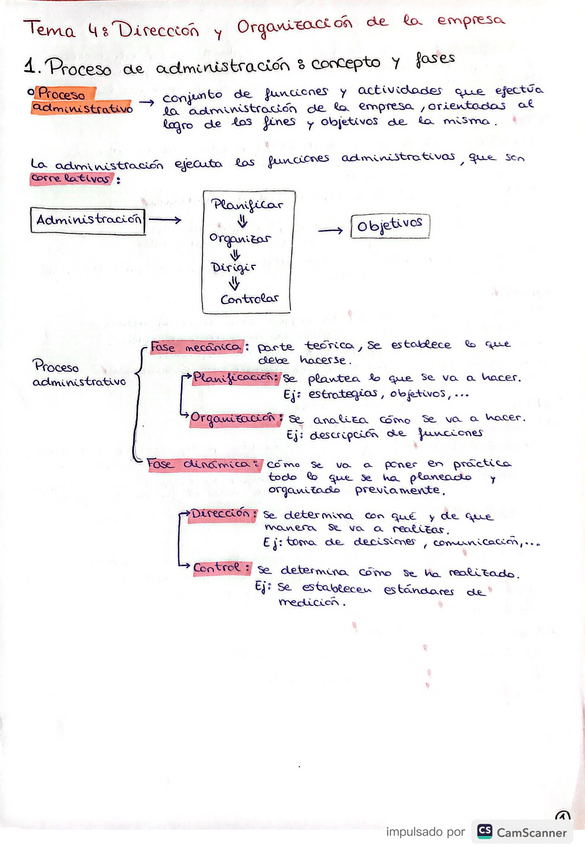 Tema 4: Dirección y Organización de la empresa
1. Proceso de administración: concepto y fases
Proceso administrativo → conjunto de funciones y actividades que efectúa
la administración de la empresa, orientadas al
logro de los fines y objetivos de la misma.
La administración ejecuta las funciones administrativas, que son
correlativas:
Administración → Planificar
⇓
Organizar
⇓
Dirigir
⇓
Controlar
→ Objetivos
Proceso
administrativo
Fase mecánica: parte teórica, se establece lo que
debe hacerse.
Planificación: Se plantea lo que se va a hacer.
Ej: estrategias, objetivos,...
Organización: Se analiza cómo se va a hacer.
Ej: descripción de funciones
Fase dinámica: cómo se va a poner en práctica
todo lo que se ha planeado y
organizado previamente.
Dirección: se determina con qué y de que
manera se va a realizar.
Ej: toma de decisiones, comunicación,...
Control: se determina cómo se ha realizado.
Ej: se establecen estándares de
medición.
1
impulsado por CS CamScanner